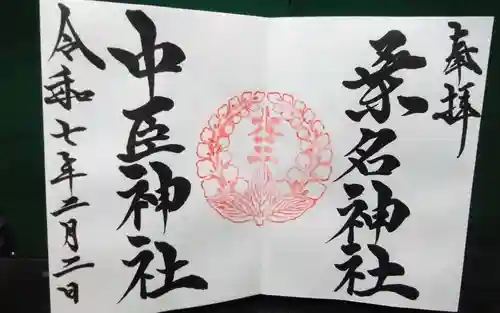 奉拝
桒名神社
中臣神社
令和七年二月二日